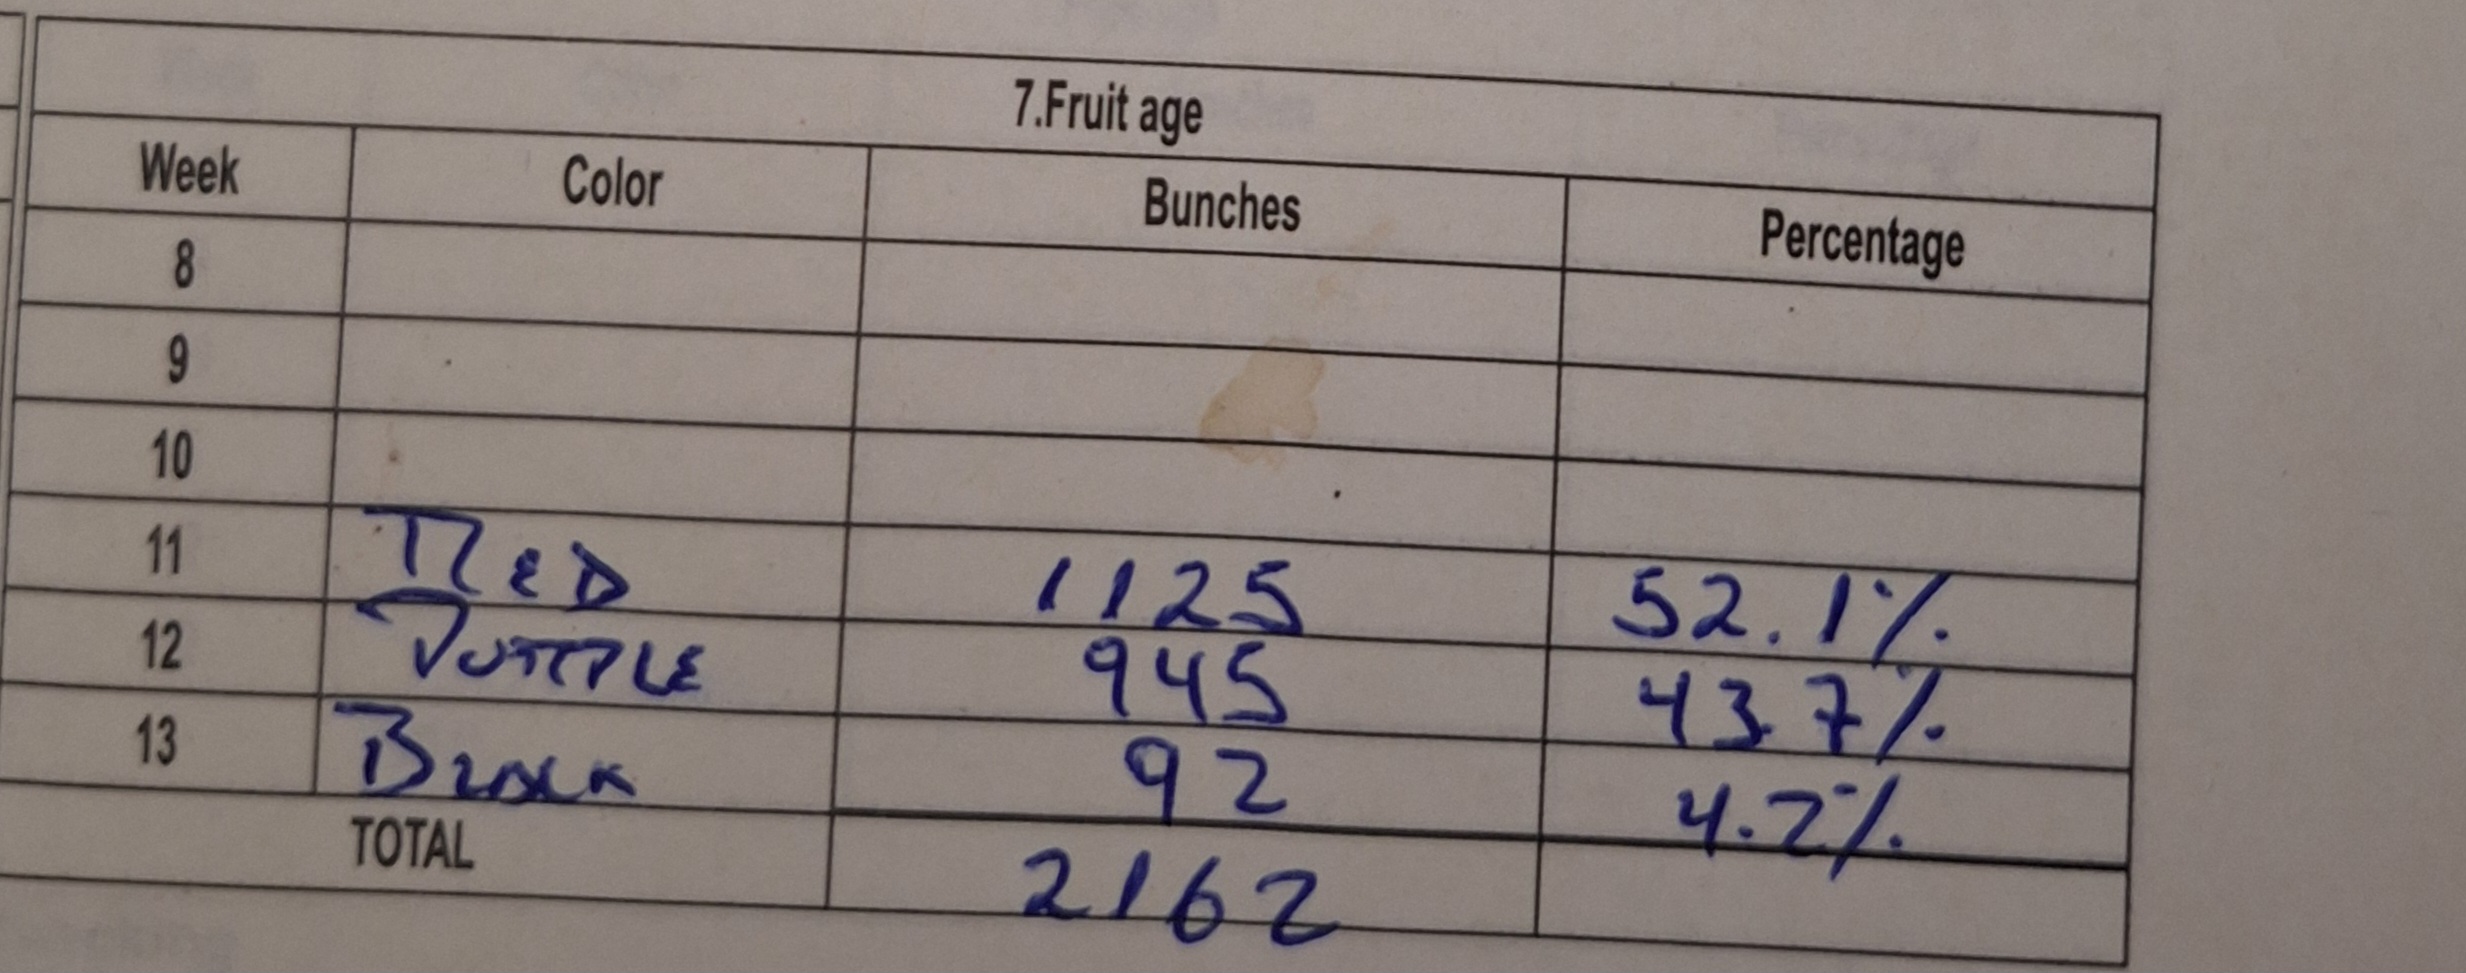 7.Fruit age
Week Color Bunches Percentage
8
9
10
11 RED 1125 52.1%
12 PURPLE 945 43.7%
13 BLACK 92 4.2%
TOTAL 2162